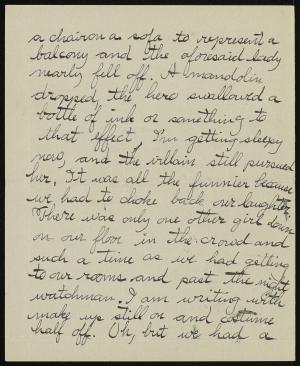 a chair on a sofa to represent a
balcony and the aforesaid lady
nearly fell off. A mandolin
dropped, the hero swallowed a
bottle of ink or something to
that effect, I'm getting sleepy
now, and the villain still pursued
her. It was all the funnier because
we had to choke back our laughter.
There was only one other girl down
on our floor in the crowd and
such a time as we had getting
to our rooms and past the night
watchman. I am writing with
make up still on and costume
half off. Oh, but we had a